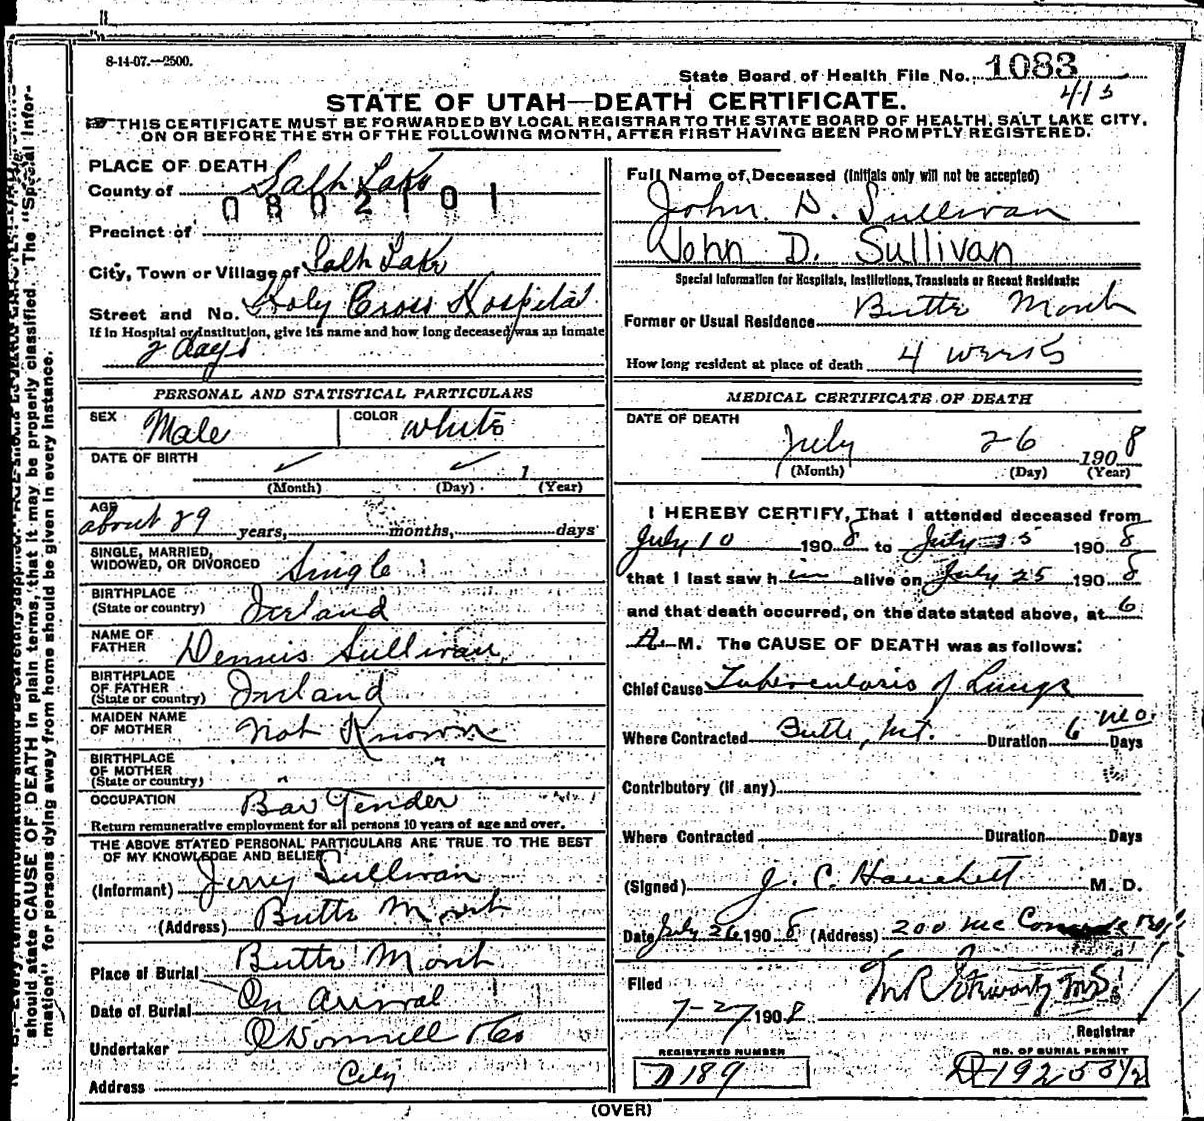 8-14-07.—2500.
State Board of Health File No. 1083
415
STATE OF UTAH—DEATH CERTIFICATE.
THIS CERTIFICATE MUST BE FORWARDED BY LOCAL REGISTRAR TO THE STATE BOARD OF HEALTH, SALT LAKE CITY,
ON OR BEFORE THE 5TH OF THE FOLLOWING MONTH, AFTER FIRST HAVING BEEN PROMPTLY REGISTERED.
PLACE OF DEATH
County of Salt Lake
0802101
Precinct of
City, Town or Village of Salt Lake
Street and No. Holy Cross Hospital
If in Hospital or Institution, give its name and how long deceased was an inmate
2 days
PERSONAL AND STATISTICAL PARTICULARS
SEX Male COLOR white
DATE OF BIRTH
1
(Month) (Day) (Year)
AGE
about 29 years, months, days
SINGLE, MARRIED,
WIDOWED, OR DIVORCED Single
BIRTHPLACE
(State or country) Ireland
NAME OF
FATHER Dennis Sullivan
BIRTHPLACE
OF FATHER
(State or country) Ireland
MAIDEN NAME
OF MOTHER Not Known
BIRTHPLACE
OF MOTHER
(State or country) "
OCCUPATION Bar Tender
Return remunerative employment for all persons 10 years of age and over.
THE ABOVE STATED PERSONAL PARTICULARS ARE TRUE TO THE BEST
OF MY KNOWLEDGE AND BELIEF
(Informant) Jerry Sullivan
(Address) Butte Mont
Place of Burial Butte Mont
Date of Burial On arrival
Undertaker O'Donnell & Co
Address City
Full Name of Deceased (Initials only will not be accepted)
John D. Sullivan
John D. Sullivan
Special Information for Hospitals, Institutions, Transients or Recent Residents:
Former or Usual Residence Butte Mont
How long resident at place of death 4 weeks
MEDICAL CERTIFICATE OF DEATH
DATE OF DEATH
July 26 1908
(Month) (Day) (Year)
I HEREBY CERTIFY, That I attended deceased from
July 10 1908 to July 25 1908
that I last saw him alive on July 25 1908
and that death occurred, on the date stated above, at 6
A M. The CAUSE OF DEATH was as follows:
Chief Cause Tuberculosis of Lungs
Where Contracted Butte, Mt. Duration 6 mo. Days
Contributory (if any)
Where Contracted Duration Days
(Signed) J. C. Hanchett M. D.
Date July 26 1908 (Address) 200 Mc
Filed
7-27 1908
Registrar
REGISTERED NUMBER
D 189
NO. OF BURIAL PERMIT
(OVER)
should state CAUSE OF DEATH in plain terms, that it may be properly classified. The "Special Infor-
mation" for persons dying away from home should be given in every instance.